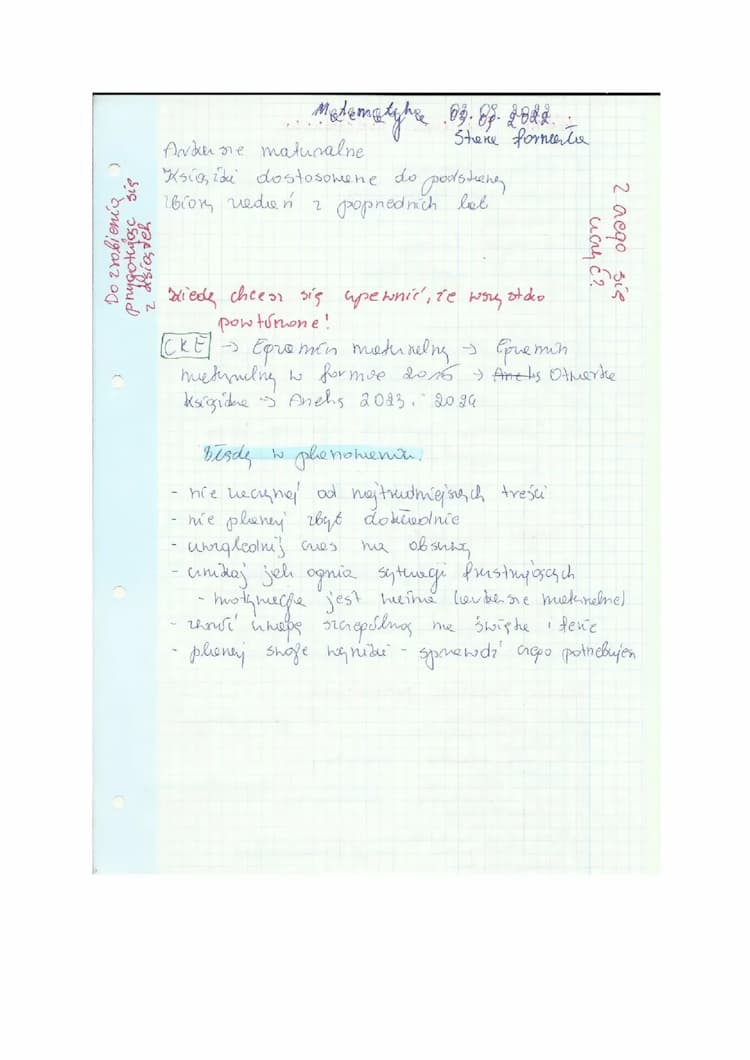 Matematyka 09.09.2022
Stara formuła
Arkusze maturalne
Książki dostosowane do podstawy
Zbiory zadań z poprzednich lat
Z czego się
uczyć?
Do zrobienia
przygotując się
z książek
Kiedy chcesz się upewnić, że wszystko
powtórzone!
CKE → Egzamin maturalny → Egzamin
maturalny w formule 2015 → Aneks Otwarta
Książka → Aneks 2023 i 2024
Błędy w planowaniu.
- nie zaczynaj od najtrudniejszych treści
- nie planuj zbyt dokładnie
- uwzględnij czas na obsuwy
- unikaj jak ognia sytuacji frustrujących
- motywacja jest ważna (arkusze maturalne)
- zwróć uwagę szczególną na święta i ferie
- planuj swoje wyniki - sprawdź czego potrzebujesz